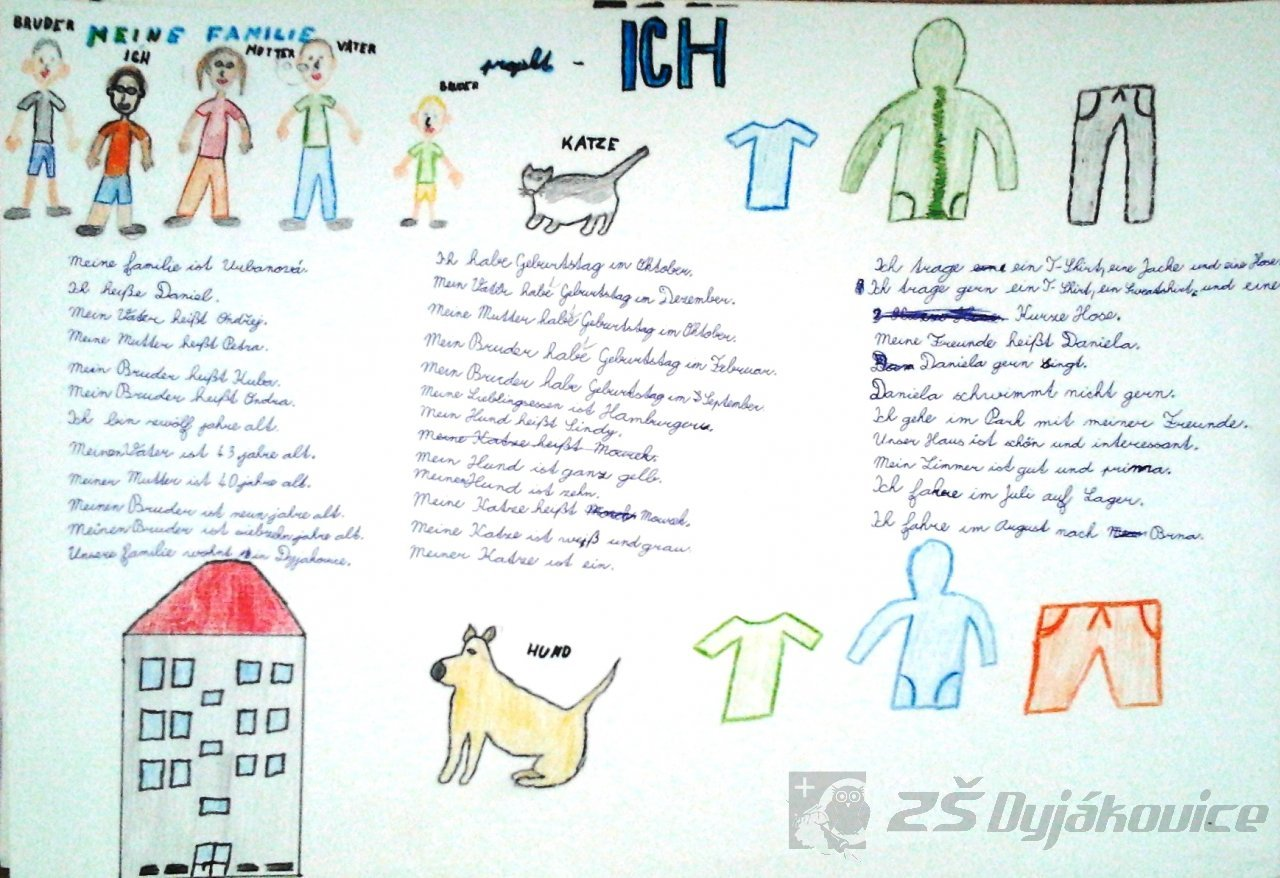 BRUDER
MEINE FAMILIE
ICH
MUTTER
VATER
BRUDER
projekt - ICH
KATZE
Meine familie ist Urbanová.
Ich heiße Daniel.
Mein Vater heißt Ondřej.
Meine Mutter heißt Petra.
Mein Bruder heißt Kuba.
Mein Bruder heißt Ondra.
Ich bin zwölf jahre alt.
Meinen Vater ist 43 jahre alt.
Meiner Mutter ist 40 jahre alt.
Meinen Bruder ist neun jahre alt.
Meinen Bruder ist siebzehn jahre alt.
Unsere familie wohnt in Dyjákovice.
Ich habe Geburtstag im Oktober.
Mein Vater habe Geburtstag im Dezember.
Meine Mutter habe Geburtstag im Oktober.
Mein Bruder habe Geburtstag im Februar.
Mein Bruder habe Geburtstag im September.
Meine Lieblingsessen ist Hamburgers.
Mein Hund heißt Lindy.
Meine Katze heißt Mourek.
Mein Hund ist ganz gelb.
Meinen Hund ist zehn.
Meine Katze heißt Mourek.
Meine Katze ist weiß und grau.
Meiner Katze ist ein.
Ich trage ein T-Shirt, eine Jacke und eine Hose.
Ich trage gern ein T-Shirt, ein Sweatshirt, und eine
Kurze Hose.
Meine Freunde heißt Daniela.
Daniela gern singt.
Daniela schwimmt nicht gern.
Ich gehe im Park mit meiner Freunde.
Unser Haus ist schön und interessant.
Mein Zimmer ist gut und prima.
Ich fahre im Juli auf Lager.
Ich fahre im August nach Brna.
HUND
ZŠ Dyjákovice